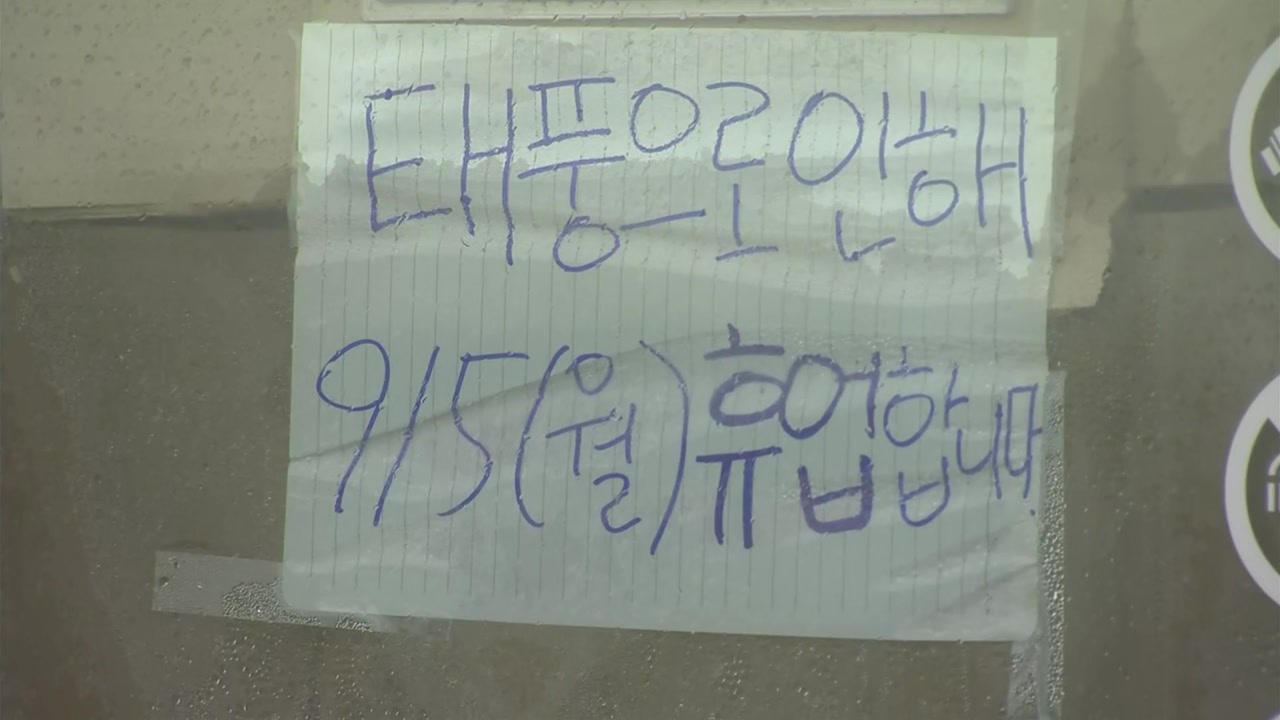 태풍으로 인해
9/5(월) 휴업합니다.